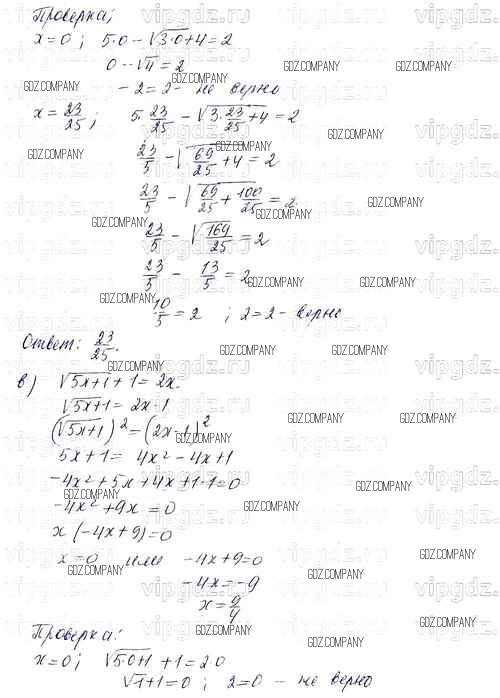 Проверка;
x=0; 5·0-√(3·0+4)=2
0-√4=2
-2=2- не верно
x=23/25; 5·23/25-√(3·23/25+4)=2
23/5-√(69/25+4)=2
23/5-√(69/25+100/25)=2
23/5-√(169/25)=2
23/5-13/5=2
10/5=2; 2=2- верно
Ответ: 23/25.
в) √(5x+1)+1=2x.
√(5x+1)=2x-1
(√(5x+1))²=(2x-1)²
5x+1=4x²-4x+1
-4x²+5x+4x+1-1=0
-4x²+9x=0
x(-4x+9)=0
x=0 или -4x+9=0
-4x=-9
x=9/4
Проверка:
x=0; √(5·0+1)+1=2·0
√1+1=0; 2=0 - не верно